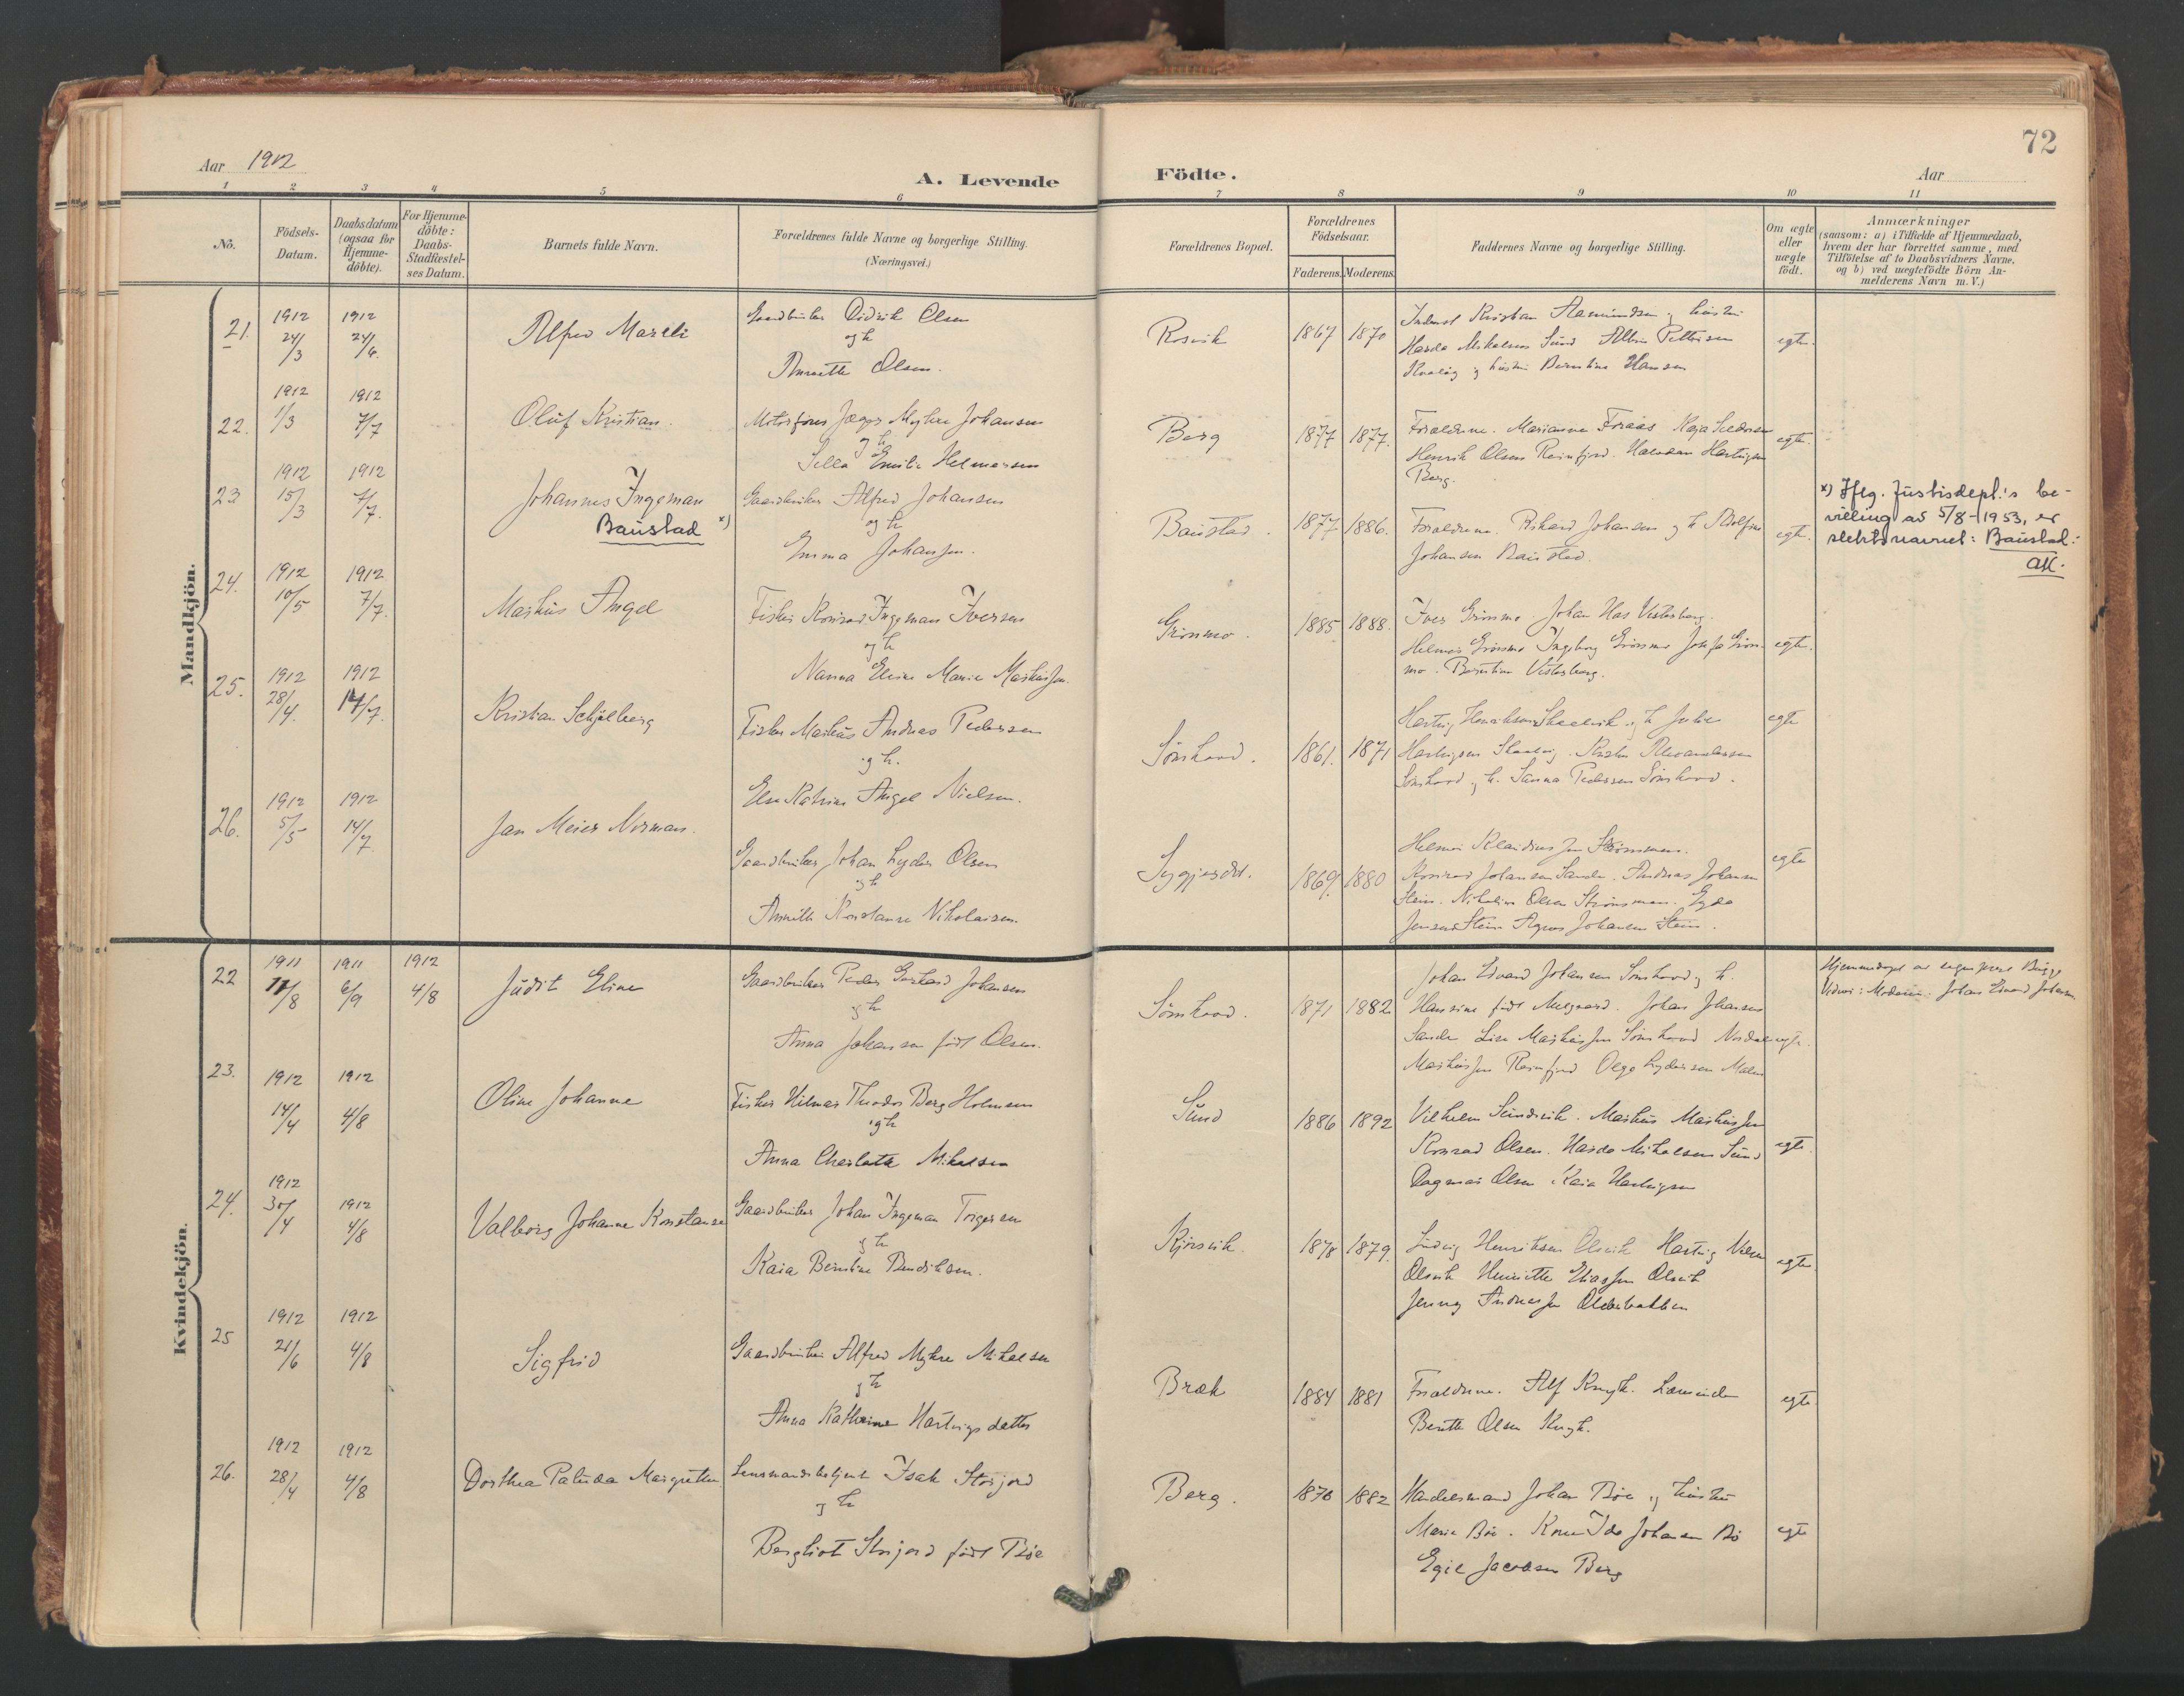 72
Aar 1912
A. Levende Födte.
Aar
1 2 3 4 5 6 7 8 9 10 11
Nō.
Födsels-Datum.
Daabsdatum (ogsaa for Hjemme-döbte).
For Hjemme-döbte: Daabs-Stadfæstel-ses Datum.
Barnets fulde Navn.
Forældrenes fulde Navne og borgerlige Stilling.
(Næringsvei.)
Forældrenes Bopæl.
Forældrenes Födselsaar.
Faderens. Moderens.
Faddernes Navne og borgerlige Stilling.
Om ægte eller uægte födt.
Anmærkninger
(saasom: a) i Tilfælde af Hjemmedaab,
hvem der har forrettet samme, med
Tilföielse af to Daabsvidners Navne.
og b) ved uægtefödte Börn An-
melderens Navn m. V.)
Mandkjön.
21. 1912 24/3 1912 24/6
Alfred
Gaardbruker Didrik Olsen
og h
Annette Olsen.
Rosvik 1867 1870
Kristian Aamundsen og hustru
Harda Mikalsen Sund Albin Pettersen
og hustru Berntine Hansen
egte.
22. 1912 1/3 1912 7/7
Oluf Kristian.
Motorfører Jæger Myhre Johansen
og h
Sella Emilie Helmersen
Berg 1877 1877.
Forældrene. Marianne Foraas Kaja
Henrik Olsen Reinfjord. Halvdan Hartvigsen
Berg.
egte.
23 1912 15/3 1912 7/7.
Johannes Ingeman
Baustad x)
Gaardbruker Alfred Johansen
og h
Emma Johansen.
Baustad. 1877 1886.
Forældrene. Rikard Johansen og h Adolfine
Johansen Baustad.
egte.
x) Iflg. Justisdept.'s be-
villing av 5/8-1953, er
slektsnavnet: Baustad.
24. 1912 10/5 1912 7/7.
Markus Angel
Fisker Konrad Ingeman Iversen
og h
Nanna Elvine Marie Markussen.
Grönmo. 1885 1888.
Iver Grönmo Johan Vesterberg.
Helmer Grönmo Ingeborg Grönmo Josefa Grön-
mo. Berntine Vesterberg.
egte.
25. 1912 28/4. 1912 14/7.
Kristian Schjelberg
Fisker Markus Andreas Pedersen
og h.
Else Katrine Angel Nielsen.
Sömhovd. 1861. 1871
Hartvig Henriksen og h Julie
Hartvigsen Alexandersen
Sömhovd og h. Sanna Pedersen Sömhovd.
egte
26. 1912 5/5 1912 14/7
Jan Meier Norman.
Gaardbruker Johan Lyder Olsen
og h
Annette Konstanse Nikolaisen.
1869. 1880
Helmer Klaudiussen Strömmen.
Konrad Johansen Sande. Andreas Johansen
Stein. Nikoline Olsen Strömmen.
Jensen Stein Agnes Johansen Stein.
egte
Kvindekjön.
22 1911 11/8 1911 6/9 1912 4/8
Judit Eline
Gaardbruker Peder Gerhard Johansen
og h
Anna Johansen født Olsen.
Sömhovd. 1871 1882
Johan Edvard Johansen Sömhovd og h.
Hansine født Johan Johansen
Sande Lise Markussen Sömhovd
Markussen Reinfjord Olga Lydersen
egte.
Hjemmedøpt av
Vidner: Moderen. Johan Edvard Johansen.
23. 1912 14/4 1912 4/8
Oline Johanne
Fisker Hilmar Theodor Berg Holmsen
og h
Anna Charlotte Mikalsen
Sund 1886 1892
Vilhelm Sundsvik. Markus Markussen
Konrad Olsen. Harda Mikalsen Sund
Dagmar Olsen Kaia Hartvigsen
egte.
24. 1912 30/4 1912 4/8
Valborg Johanne Konstanse
Gaardbruker Johan Ingeman Torgersen
og h
Kaia Berntine Bendiksen.
Kjørsvik. 1878 1879.
Ludvig Henriksen Olsvik Hartvig Nilsen
Olsvik Henriette Eliassen Olsvik
Jenny Andreassen Olderbakken
egte.
25 1912 21/6 1912 4/8
Sigfrid
Gaardbruker Alfred Myhre Mikalsen
og h
Anna Kathrine Hartvigsdatter
Bræk 1884 1881
Forældrene. Alf Krogh. Lovinde
Berette Olsen Krogh.
egte.
26. 1912 28/4 1912 4/8
Dorthea Paluda Margrethe
Lensmandsbetjent Isak Storjord
og h
Bergliot Storjord født Bøe
Berg. 1876 1882
Handelsmand Johan Bøe og hustru
Marie Bøe. Kone Ida Johansen Bø
Egil Jacobsen Berg
egte